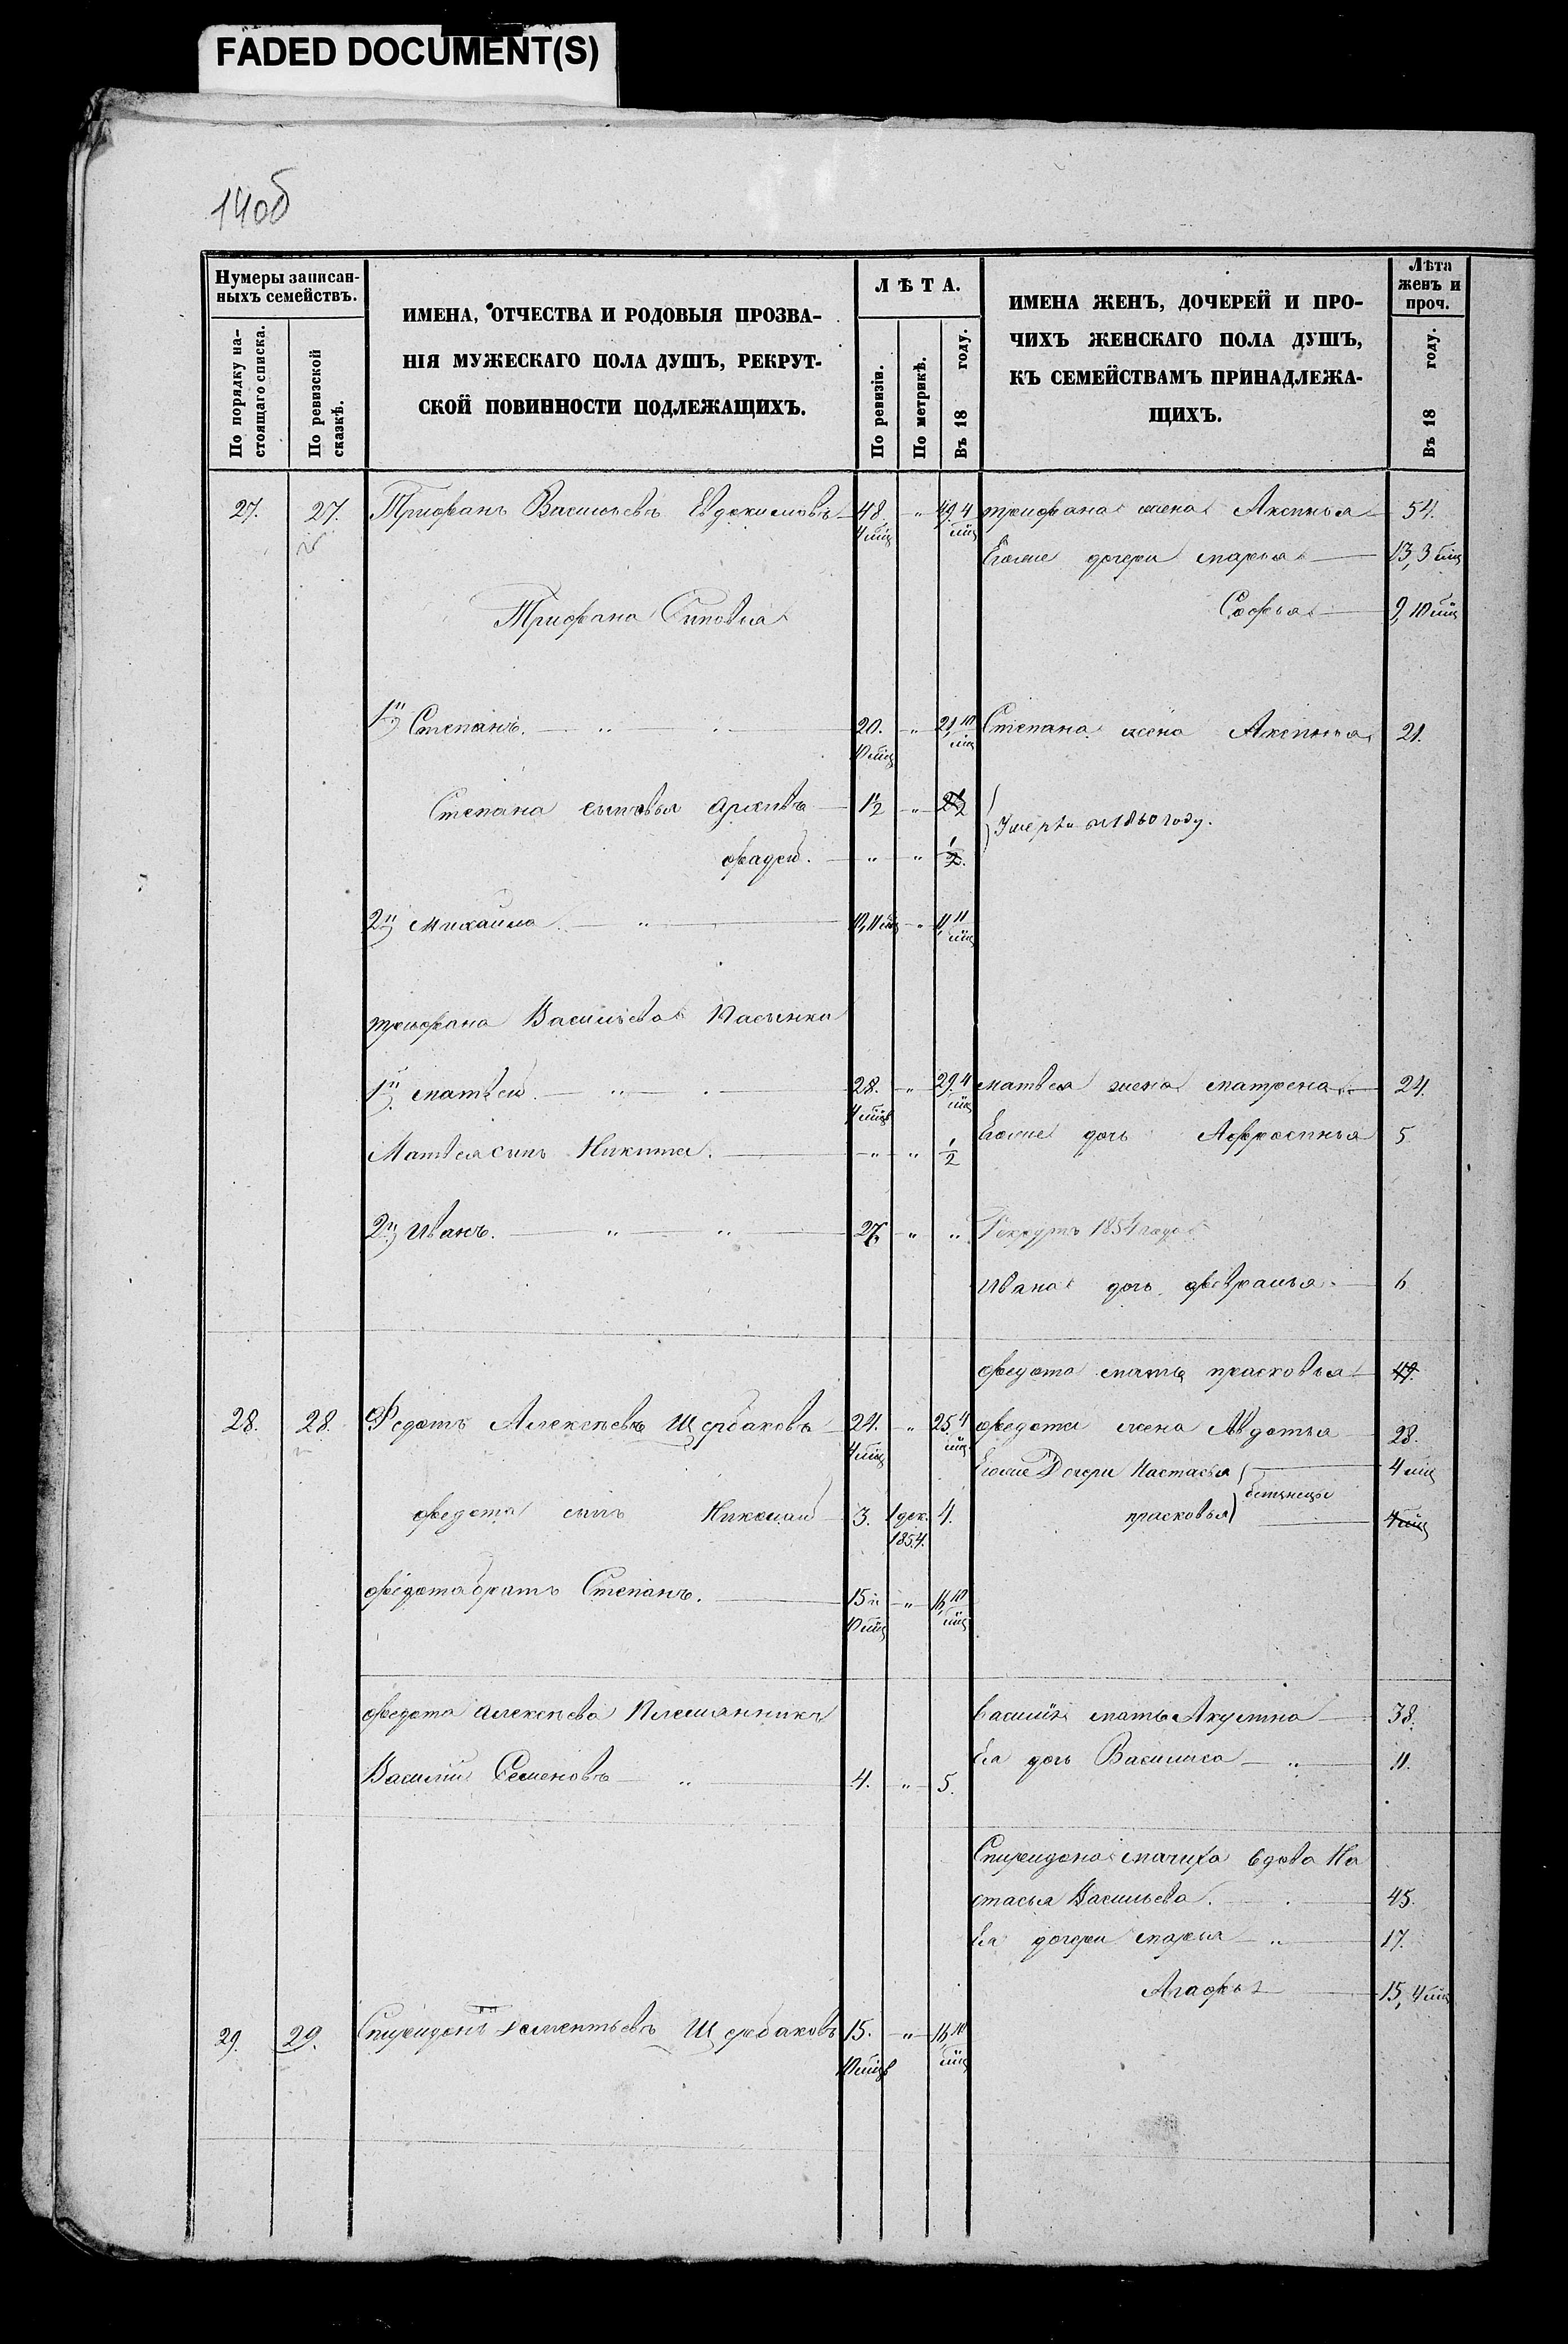 FADED DOCUMENT(S)
140б
Нумеры записан-
ныхъ семействъ.
По порядку на-
стоящаго списка.
По ревизской
сказкѣ.
ИМЕНА, ОТЧЕСТВА И РОДОВЫЯ ПРОЗВА-
НІЯ МУЖЕСКАГО ПОЛА ДУШЪ, РЕКРУТ-
СКОЙ ПОВИННОСТИ ПОДЛЕЖАЩИХЪ.
ЛѢТА.
По ревизіи.
По метрикѣ.
Въ 18 году.
ИМЕНА ЖЕНЪ, ДОЧЕРЕЙ И ПРО-
ЧИХЪ ЖЕНСКАГО ПОЛА ДУШЪ,
КЪ СЕМЕЙСТВАМЪ ПРИНАДЛЕЖА-
ЩИХЪ.
Лѣта
женъ и
проч.
Въ 18 году.
27. 27. Трифанъ Васильевъ Евдокимовъ 48. 4 мѣц „ 49. 4 мѣц трифана жена Аксинья 54.
Егоже дочери марья 13, 3 мѣц
Трифана Сыновья Софья 9, 10 мѣц
1й Степанъ. „ „ 20. 10 мѣц „ 21, 10 мѣц Степана жена Аксинья 21.
Степана сыновья Архипъ 1/2 „ 2 1/2
Умерли въ 1860 году.
фадей. „ „ 1/2.
2й Михайла „ 10, 11 мѣц „ 11, 11 мѣц
трифана Васильева Пасынки
1й матвей. „ 28. 4 мѣц „ 29. 4 мѣц матвея жена матрена 24.
Егоже дочь Афросинья 5
Матвея сынъ Никита. „ „ 1/2
2й Иванъ. „ „ 27, „ „ Рекрутъ 1854 года
Ивана дочь февралья 6
федота мать прасковья 49.
28. 28. Федотъ Алексеевъ Щербаковъ 24. 4 мѣц „ 25. 4 мѣц федота жена Авдотья 28.
Егоже Дочери Настасья 4 мѣц
близнецы
прасковья 4 мѣц
федота сынъ Николай 3. 1 дек. 1854. 4.
федота братъ Степанъ. 15 и 10 мѣц „ 16, 10 мѣц
федота алексеева Племянникъ Василія мать Акулина 38.
Ея дочь Василиса „ 11.
Василій Семеновъ „ 4. „ 5.
Спиридона мачиха вдова На
стасья Васильева. 45.
Ея дочери марья „ 17.
Агафья 15, 4 мѣц
29. 29. Спиридонъ Дементьевъ Щербаковъ 15. 10 мѣц „ 16, 10 мѣц